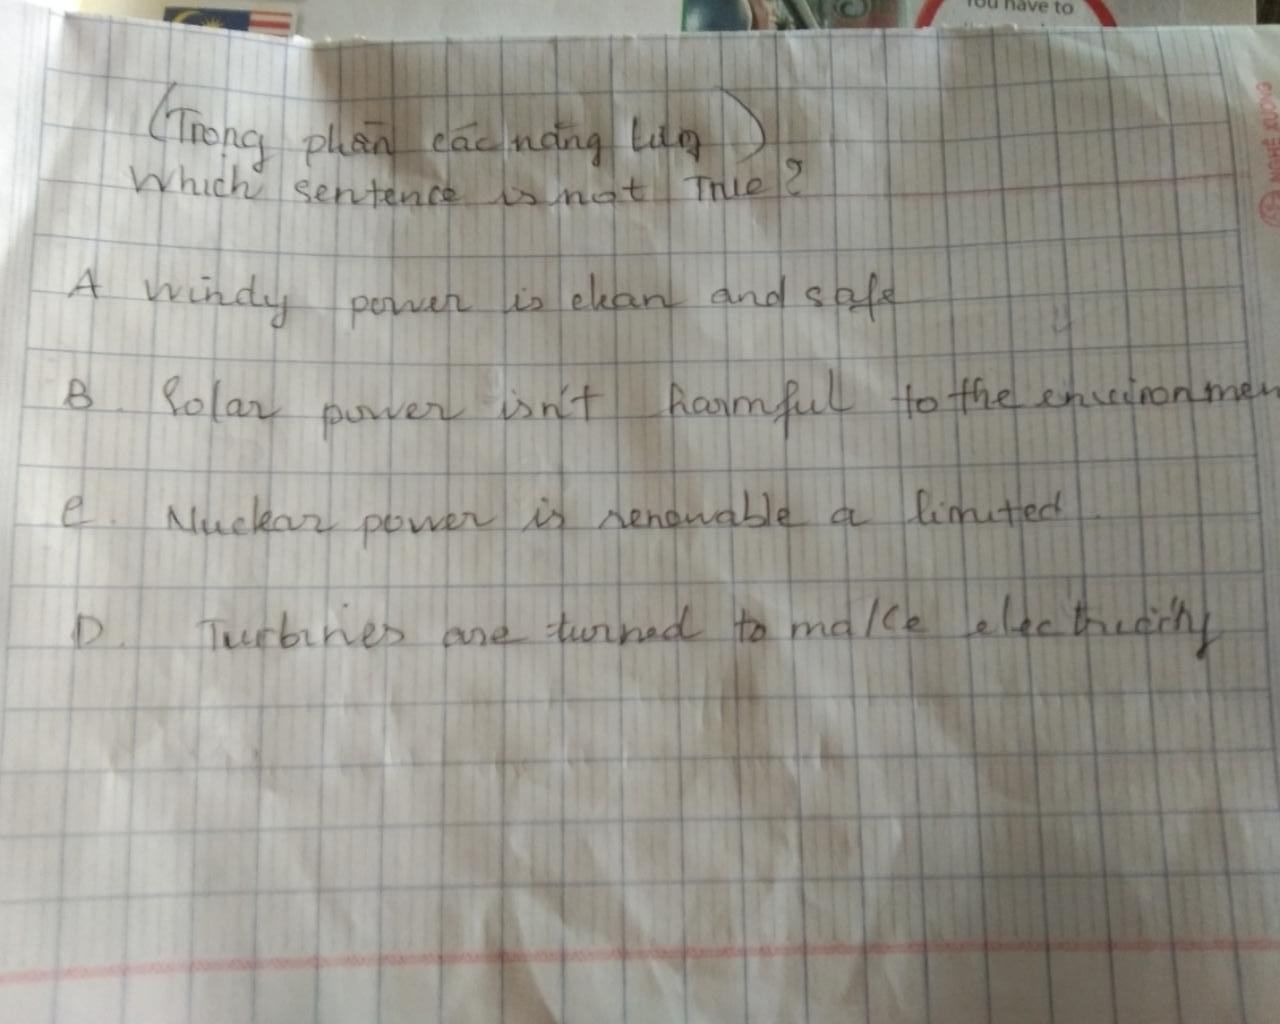 You have to
(Trong phần các năng lượg)
Which sentence is not True?
A windy power is clean and safe
B. Solar power isn't harmful to the environmen
C. Nuclear power is renewable a limited.
D. Turbines are turned to make electricity